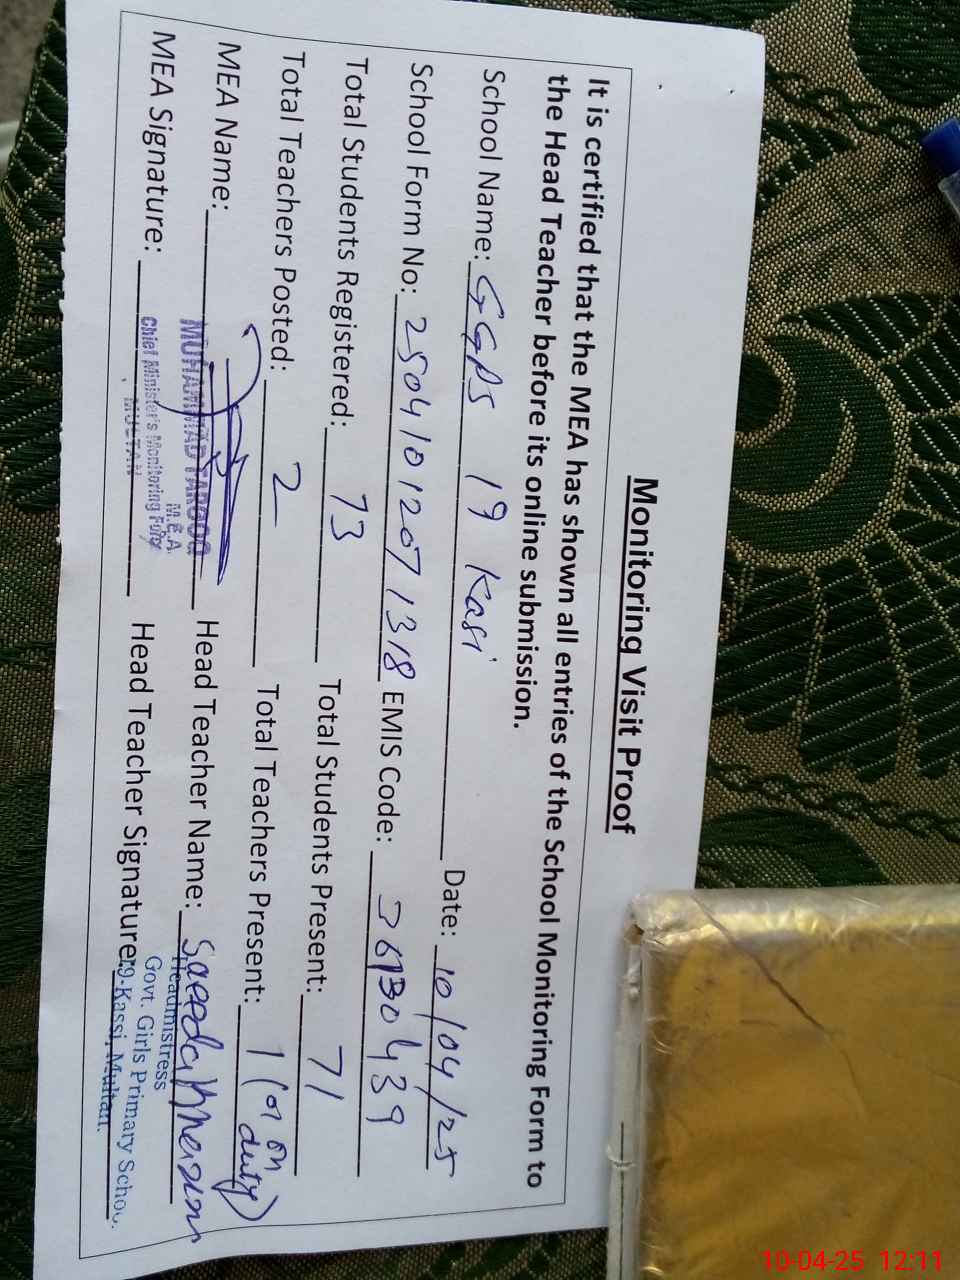 Monitoring Visit Proof
It is certified that the MEA has shown all entries of the School Monitoring Form to
the Head Teacher before its online submission.
School Name: GGPS 19 Kasi Date: 10/04/25
School Form No: 25041012071318 EMIS Code: 36130439
Total Students Registered: 73 Total Students Present: 71
Total Teachers Posted: 2 Total Teachers Present: 1 (01 on duty)
MEA Name: MUHAMMAD TAROOQ Head Teacher Name: Saeeda
M.E.A.
MEA Signature: Chief Minister's Monitoring Force Head Teacher Signature:
MULTAN
Headmistress
Govt. Girls Primary School
19-Kassi, Multan.
10-04-25 12:11